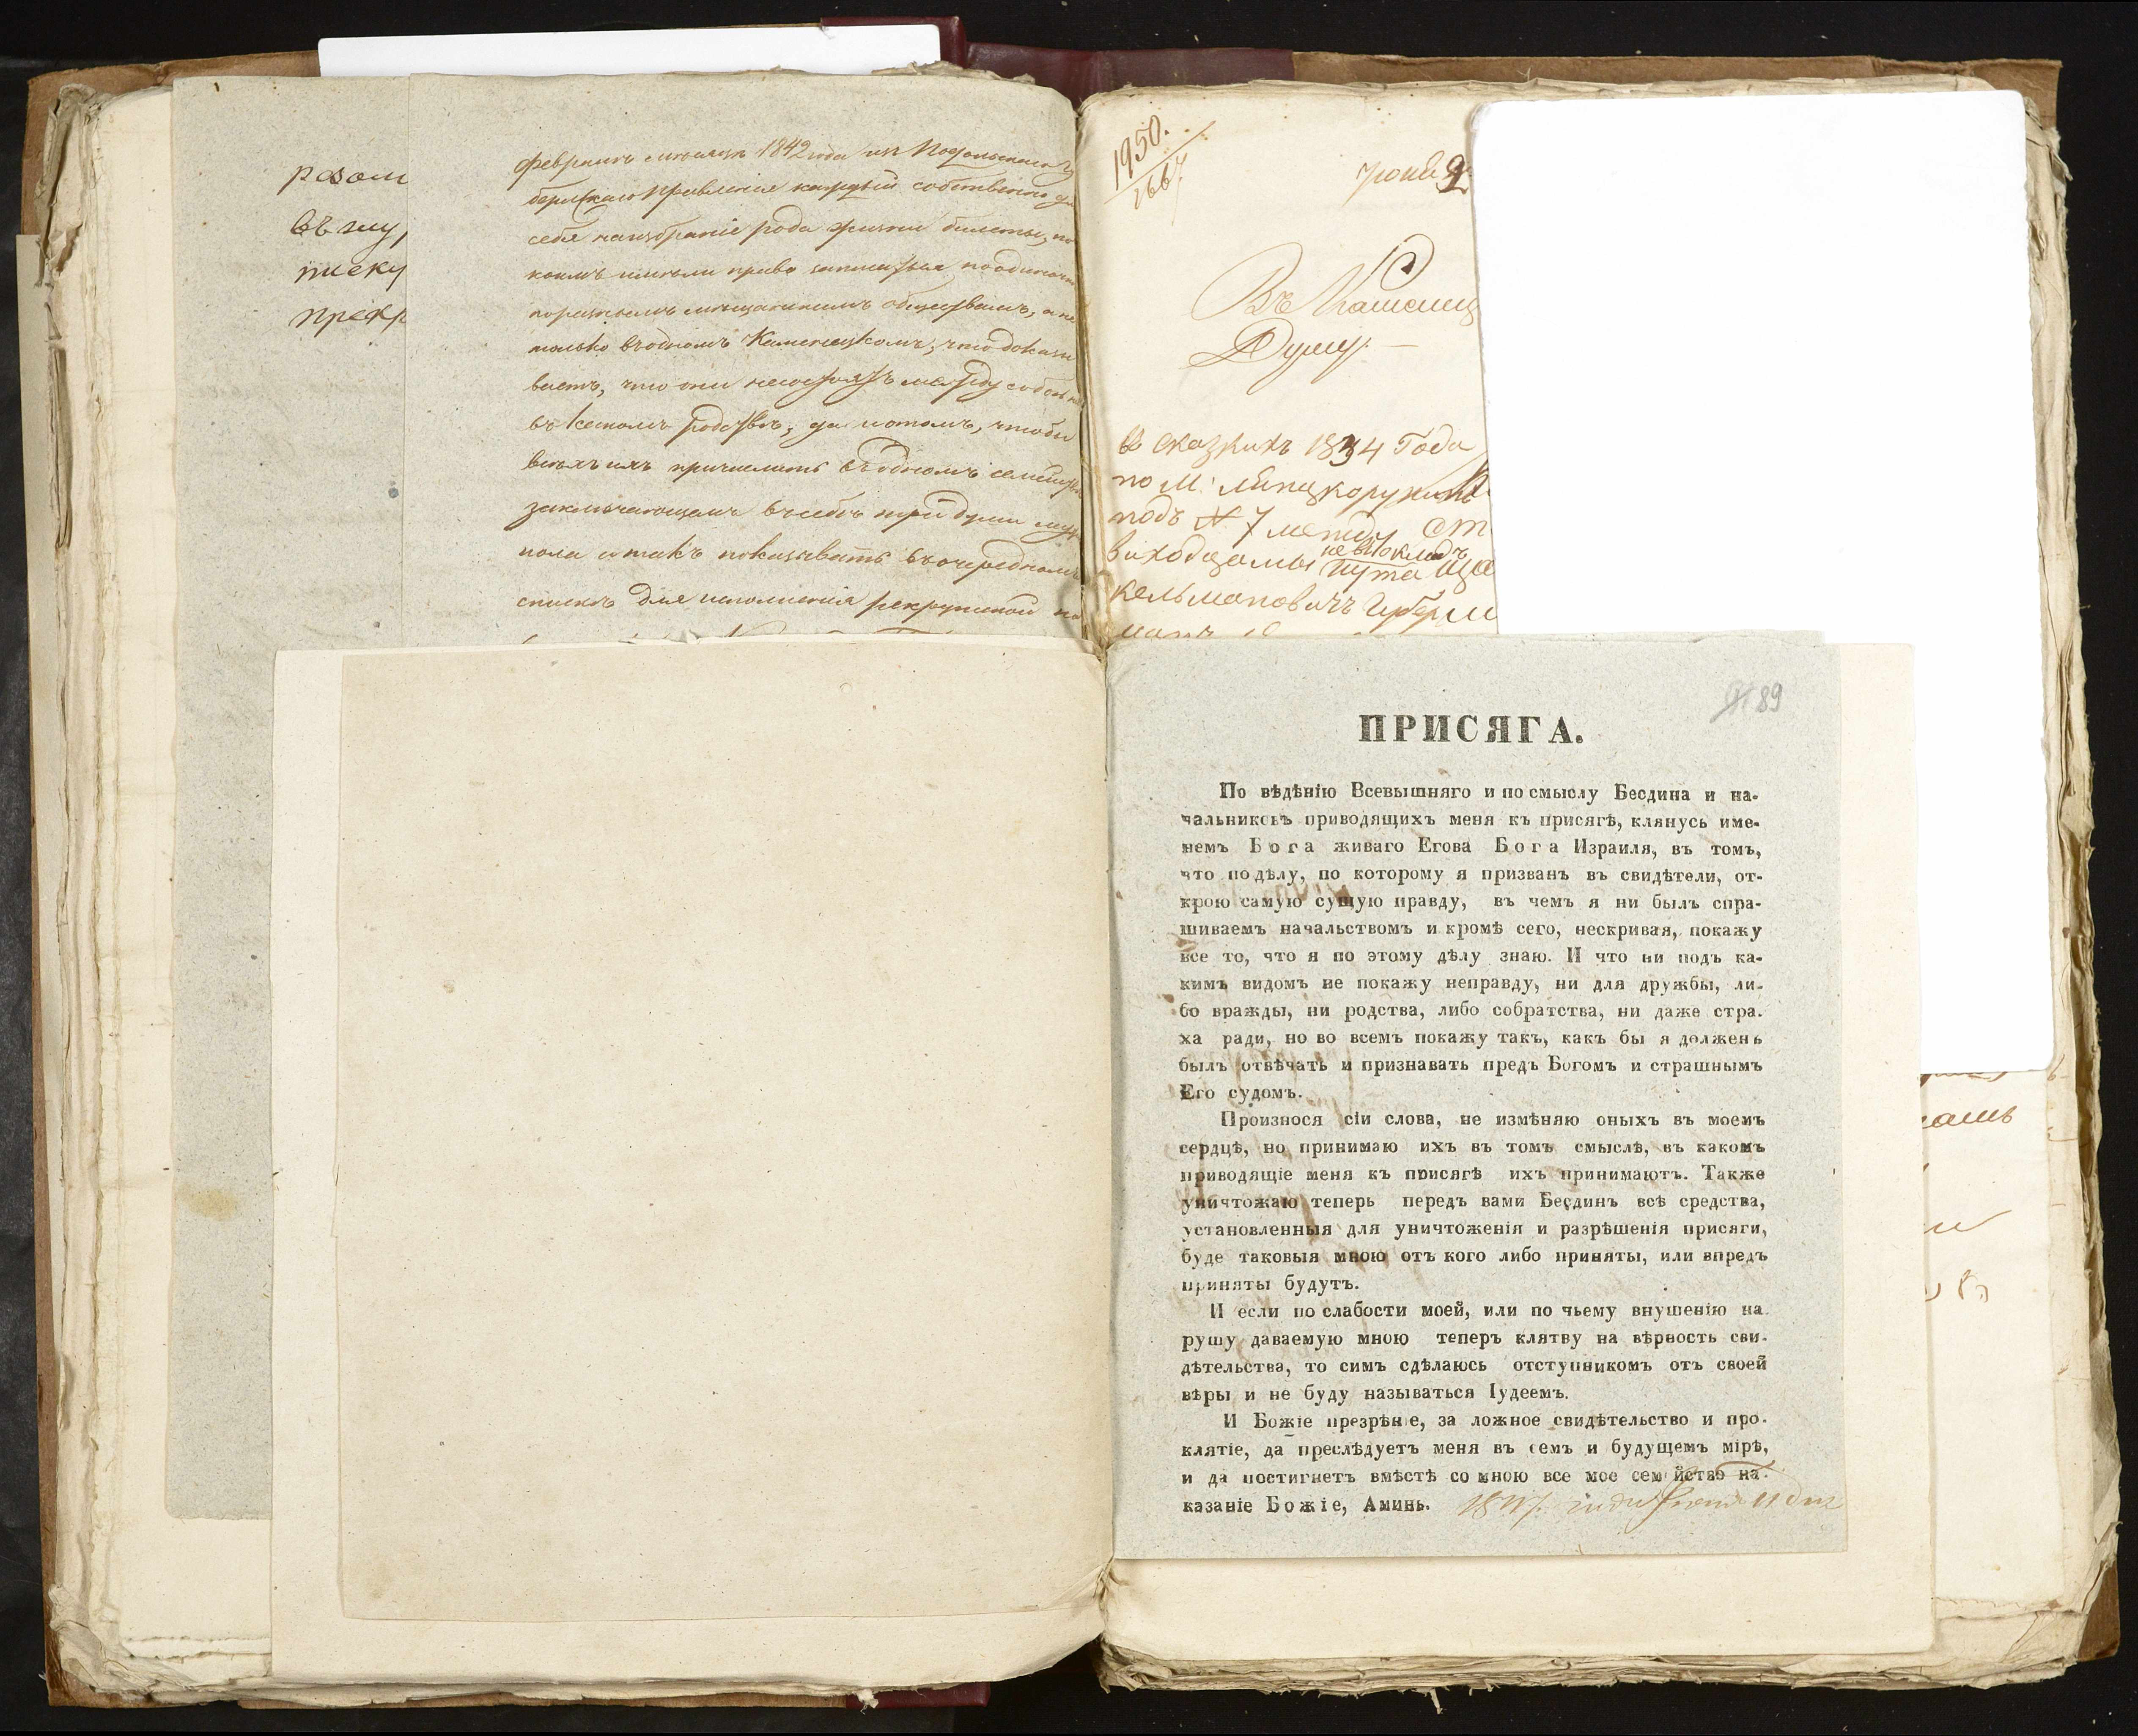 разом
въ му
писку
февраля мѣсяца 1842 года изъ Подольскаго Гу
бернскаго Правленія каждый собственно для
себя на избраніе рода жизни билеты, по
коимъ имѣли право записаться поодиночкѣ
мѣщанскимъ обществамъ, а не
только въ одномъ Каменецкомъ, что доказы
ваетъ, что они несостоятъ между собою ни
въ какомъ родствѣ, да и потомъ, чтобы
всѣхъ ихъ причислить въ одномъ семействѣ
заключающемъ въ себѣ три души муж
пола и такъ показывать въ очередномъ
спискѣ для исполненія рекрутской по
1950.
1667
Іюня 9
Въ Каменец
Думу.
в сказкихъ 1834 Года
по М:
подъ № 7 между
виходцамы
кельмановичъ Губерм
ПРИСЯГА.
89
По вѣдѣнію Всевышняго и по смыслу Бесдина и на-
чальниковъ приводящихъ меня къ присягѣ, клянусь име-
немъ Бога живаго Егова Бога Израиля, въ томъ,
что по дѣлу, по которому я призванъ въ свидѣтели, от-
крою самую сущую правду, въ чемъ я ни былъ спра-
шиваемъ начальствомъ и кромѣ сего, нескривая, покажу
все то, что я по этому дѣлу знаю. И что ни подъ ка-
кимъ видомъ не покажу неправду, ни для дружбы, ли-
бо вражды, ни родства, либо собратства, ни даже стра-
ха ради, но во всемъ покажу такъ, какъ бы я долженъ
былъ отвѣчать и признавать предъ Богомъ и страшнымъ
Его судомъ.
Произнося сіи слова, не измѣняю оныхъ въ моемъ
сердцѣ, но принимаю ихъ въ томъ смыслѣ, въ какомъ
приводящіе меня къ присягѣ ихъ принимаютъ. Также
уничтожаю теперь передъ вами Бесдинъ всѣ средства,
установленныя для уничтоженія и разрѣшенія присяги,
буде таковыя мною отъ кого либо приняты, или впредъ
приняты будутъ.
И если по слабости моей, или по чьему внушенію на-
рушу даваемую мною теперъ клятву на вѣрность сви-
дѣтельства, то симъ сдѣлаюсь отступникомъ отъ своей
вѣры и не буду называться Іудеемъ.
И Божіе презрѣніе, за ложное свидѣтельство и про-
клятіе, да преслѣдуетъ меня въ семъ и будущемъ мірѣ,
и да постигнетъ вмѣстѣ со мною все мое семейство на-
казаніе Божіе, Аминь. 1847. года Іюня 11 дня